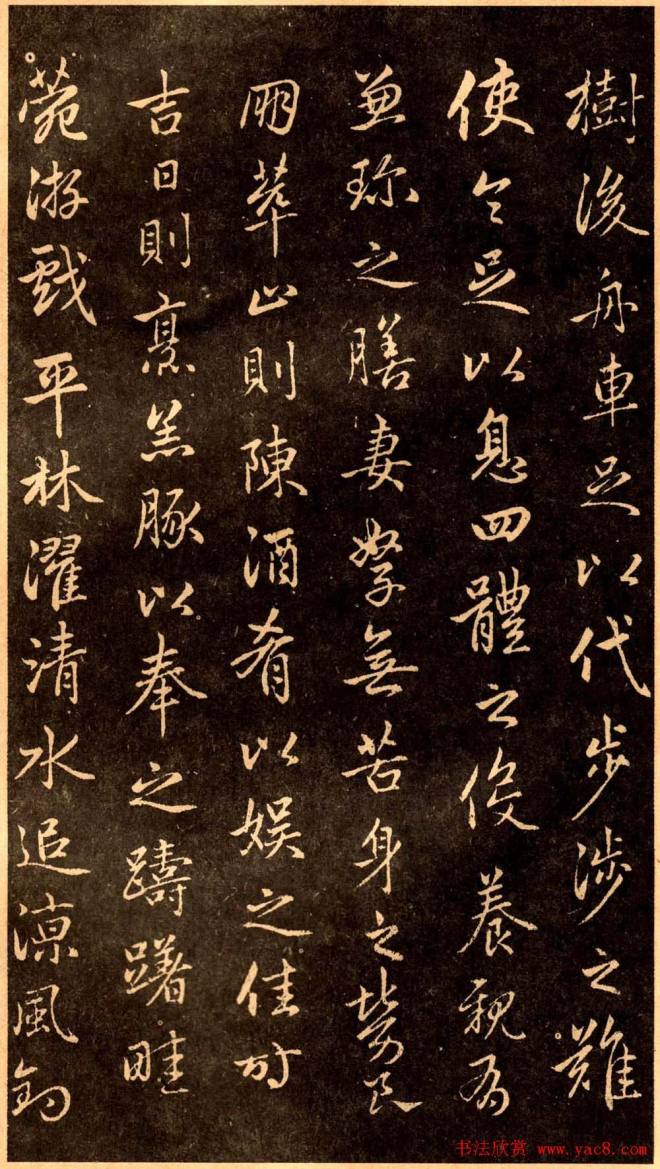 樹後舟車足以代步涉之難
使令足以息四體之役養親有
兼珍之膳妻孥無苦身之勞良
朋萃止則陳酒肴以娛之佳時
吉日則烹羔豚以奉之躊躇畦
菀游戲平林濯清水追涼風釣
书法欣赏 www.yac8.com